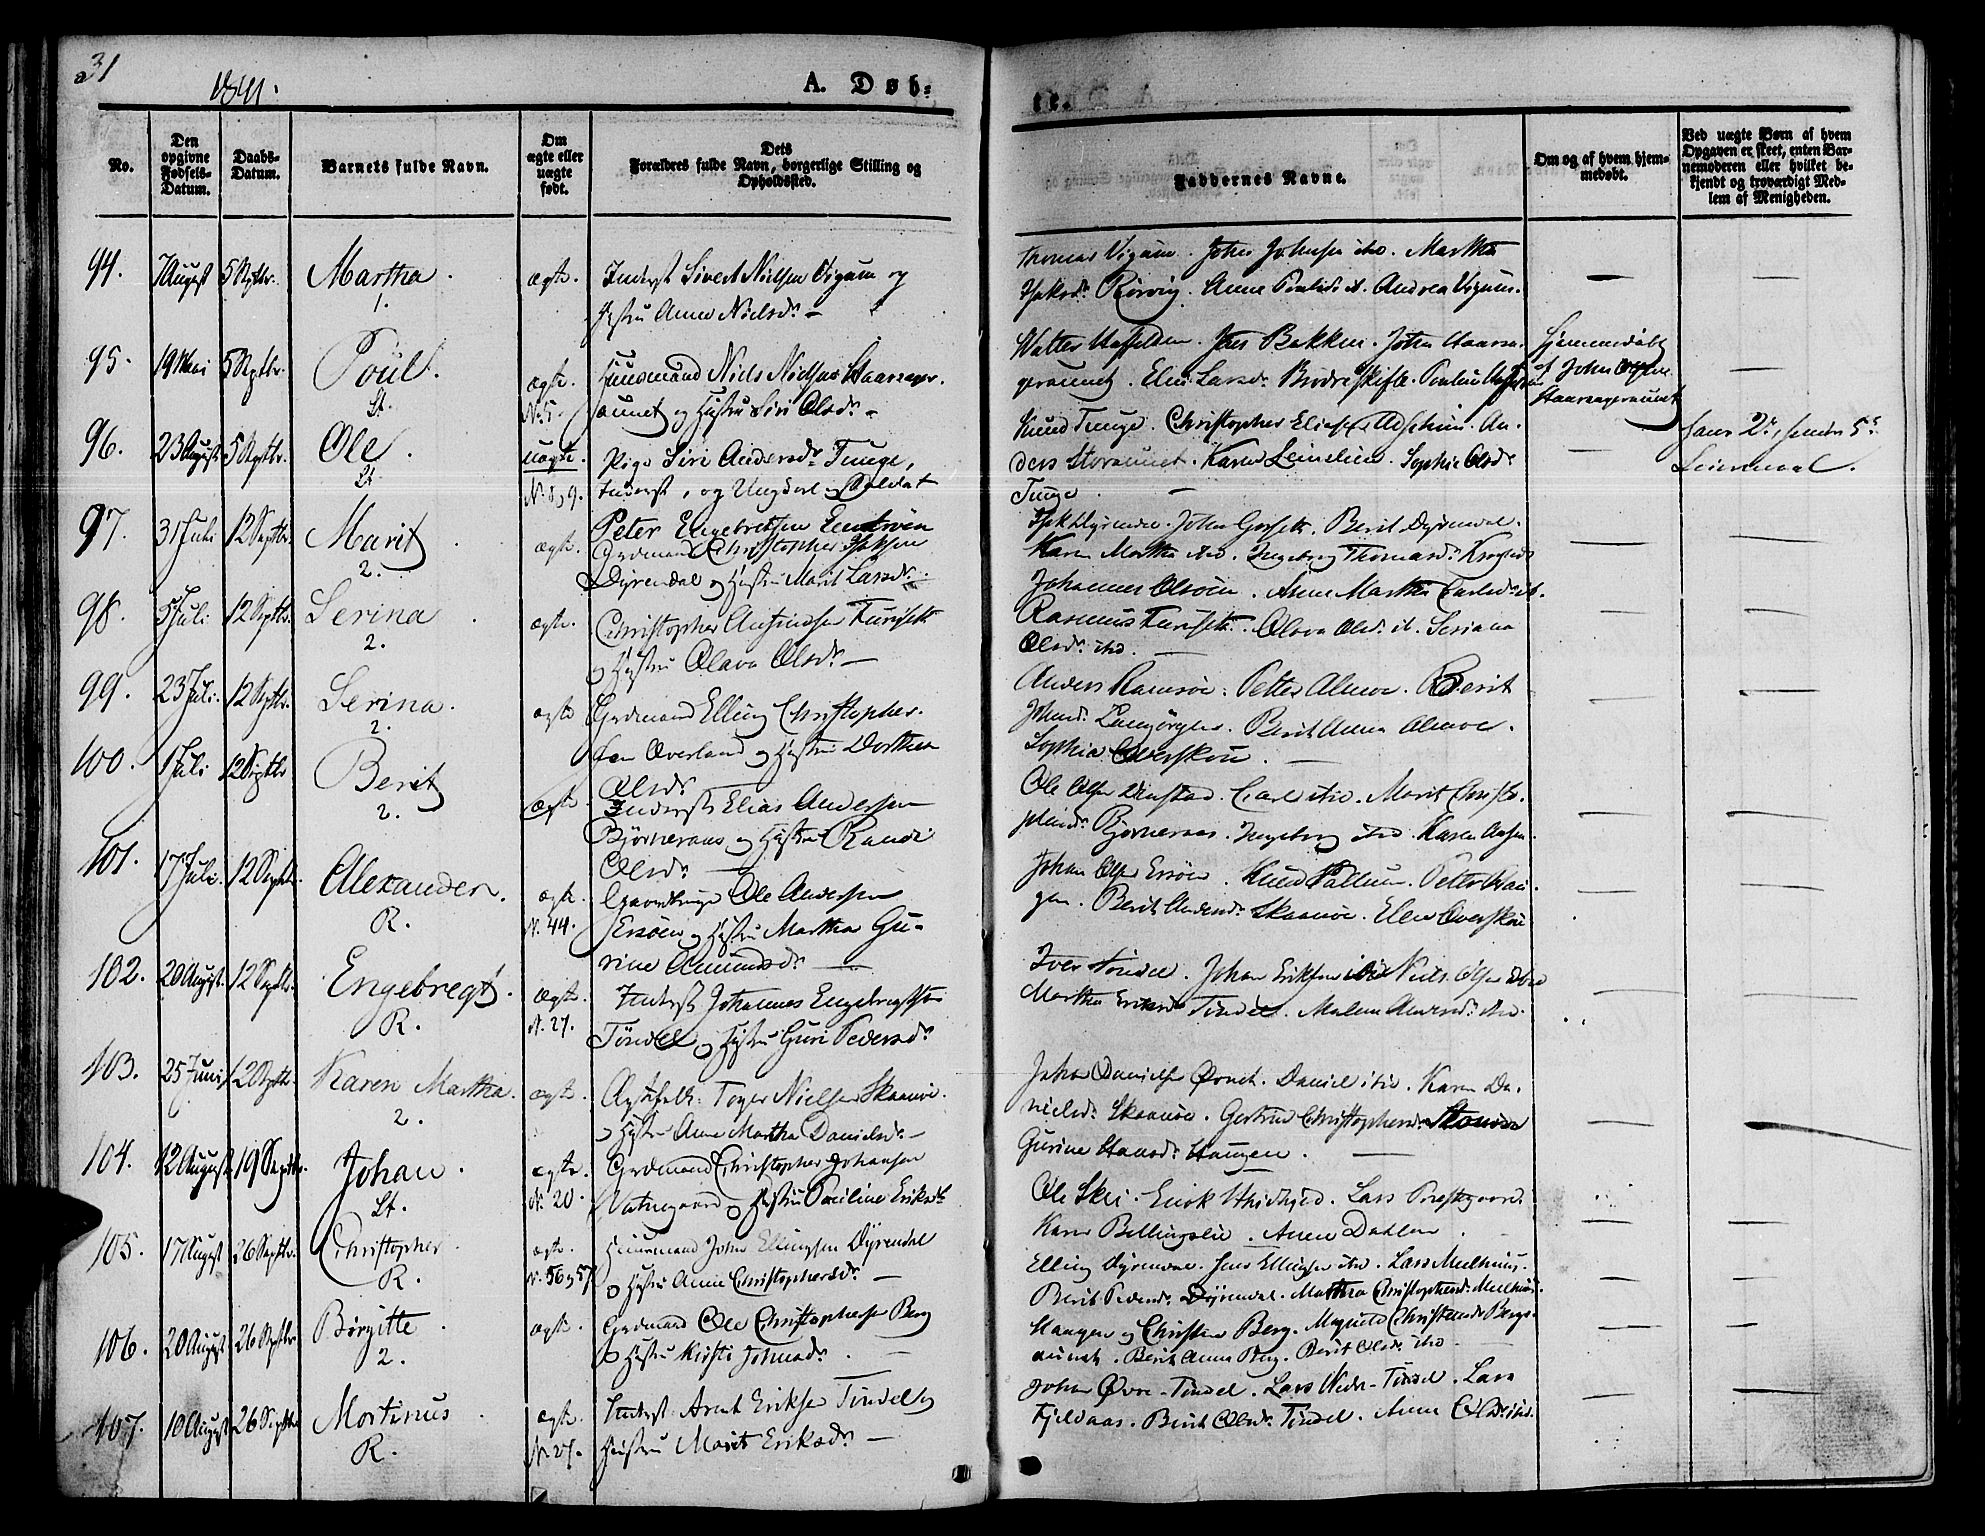 31
1841.
A. Døb-
te.
No.
Den opgivne Fødsels-Datum.
Daabs-Datum.
Barnets fulde Navn.
Om ægte eller uægte født.
Dets Forældres fulde Navn, borgerlige Stilling og Opholdssted.
Faddernes Navne.
Om og af hvem hjem-medøbt.
Ved uægte Børn af hvem Opgaven er skeet, enten Bar-nemoderen eller hvilket be-kjendt og troværdigt Med-lem af Menigheden.
94. 7 August 5 Septbr. Martha. ægte. Inderst Sivert Nielsen Vigum og
1.
Hustru Anne Nielsdr. —
Thomas Vigum. John Johnsen ibd. Martha
Isaksdr. Rørvig. Anne Paulsdr. ib. Andrea Vigum.
95. 19 Mai 5 Septbr. Poul. ægte. Huusmand Niels Nielsen Haarsager-
St.
N. 5. aunet og Hustru Siri Olsdr. —
Jens Bakken. John Haarsa-
geraunet. Elen Larsdr. Brødreskifte.
Hjemmedøbt
af John Olsen
Haarsageraunet
96. 23 August 5 Septbr. Ole. uægte. Pige Siri Andersdr. Tunge,
St.
N. 8, 9. Inderst, og Ungkarl og Soldat
Peter Engebretsen
Knud Tunge. Christopher An-
ders Storaunet. Karen Leinslien. Sophie Olsdr.
Tunge. —
hans 2., hendes 5.
Leiermaal.
97. 31 Juli 12 Septbr. Marit. ægte. Grdmand Christopher Isaksen
2.
Dyrendal og Hustru Marit Larsdr.
Isak Dyrendal. John Berit Dyrendal.
Karen Martha ibd. Ingeborg Thomasdr.
98. 5 Juli 12 Septbr. Serina. ægte. Christopher Furuseth
2.
og Hustru Olava Olsdr. —
Johannes Anne Martha Carlsdr. ib.
Rasmus Furuseth. Olava Olsdr. ib. Seriana
Olsdr. ibd. —
99. 23 Juli. 12 Septbr. Serina. ægte Grdmand Elling Christopher-
2.
sen Overland og Hustru Dorthea
Olsdr.
Anders Ramsøe. Petter Almoe. Berit
Berit Anna Almoe.
Sophia Overskou. —
100. 1 Juli 12 Septbr Berit ægte Inderst Elias Andersen
2.
Bjørneraas og Hustru Randi
Olsdr. —
Ole Olsen Carl ibd. Marit Christo-
phersdr. Bjørneraas. Ingeborg ibd. Karen
101. 17 Juli. 12 Septbr. Alexander. ægte. Ole Andersen
R.
N. 44. og Hustru Martha Gu-
rine Amundsdr. —
Johan Olsen Knud Petter Hau-
gen. Berit Andersdr. Skaanøe. Elen Overskou
102. 20 August. 12 Septbr. Engebregt. ægte. Inderst Johannes Engebregtsen
R.
N. 27. Tøndel og Hustru Guri Pedersdr.
Iver Tøndel. Johan Eriksen ibd. Niels Olsen ibd
Martha Eriksdr. Tøndel. Malena Andersdr. ibd.
103. 25 Juni 12 Septbr. Karen Martha. ægte. Toger Nielsen Skaanøe.
2.
og Hustru Anne Martha Danielsdr. —
Johan Danielsen Daniel ibd. Karen Da-
nielsdr. Skaanøe. Gertrud Christophersdr.
Gurine Hansdr. Haugen. —
104. 12 August 19 Septbr. Johan. ægte. Grdmand Christopher Johansen
St.
N. 20. Vatnegaard og Hustru Pauline Eriksdr.
Ole Skei. Lars Prestegaard.
Karen Billingslie. Anne Dahlen.
105. 17 August 26 Septbr. Christopher. ægte. Huusmand John Ellingsen Dyrendal
R.
N. 56 og 57. og Hustru Anne Christophersdr. —
Elling Dyrendal. Jens Ellingsen ibd. Lars Meelhuus.
Berit Pedersdr. Dyrendal. Martha Christophersdr. Meelhuus.
106. 20 August 26 Septbr. Birgitte. ægte. Grdmand Ole Christophersen Berg
2.
og Hustru Kirsti Johnsdr. —
Haagen og Christen Berg. Magnild Christensdr. Bergs-
aunet. Berit Anna Berg. Berit Olsdr. ibd.
107. 10 August 26 Septbr. Mortinus. ægte. Inderst Arnt Eriksen Tøndel og
R.
N. 27. Hustru Marit Eriksdr. —
Johan Øvre-Tøndel. Lars Nedre-Tøndel. Lars
Fjeldaas. Berit Olsdr. Tøndel. Anne Olsdr. ibd.